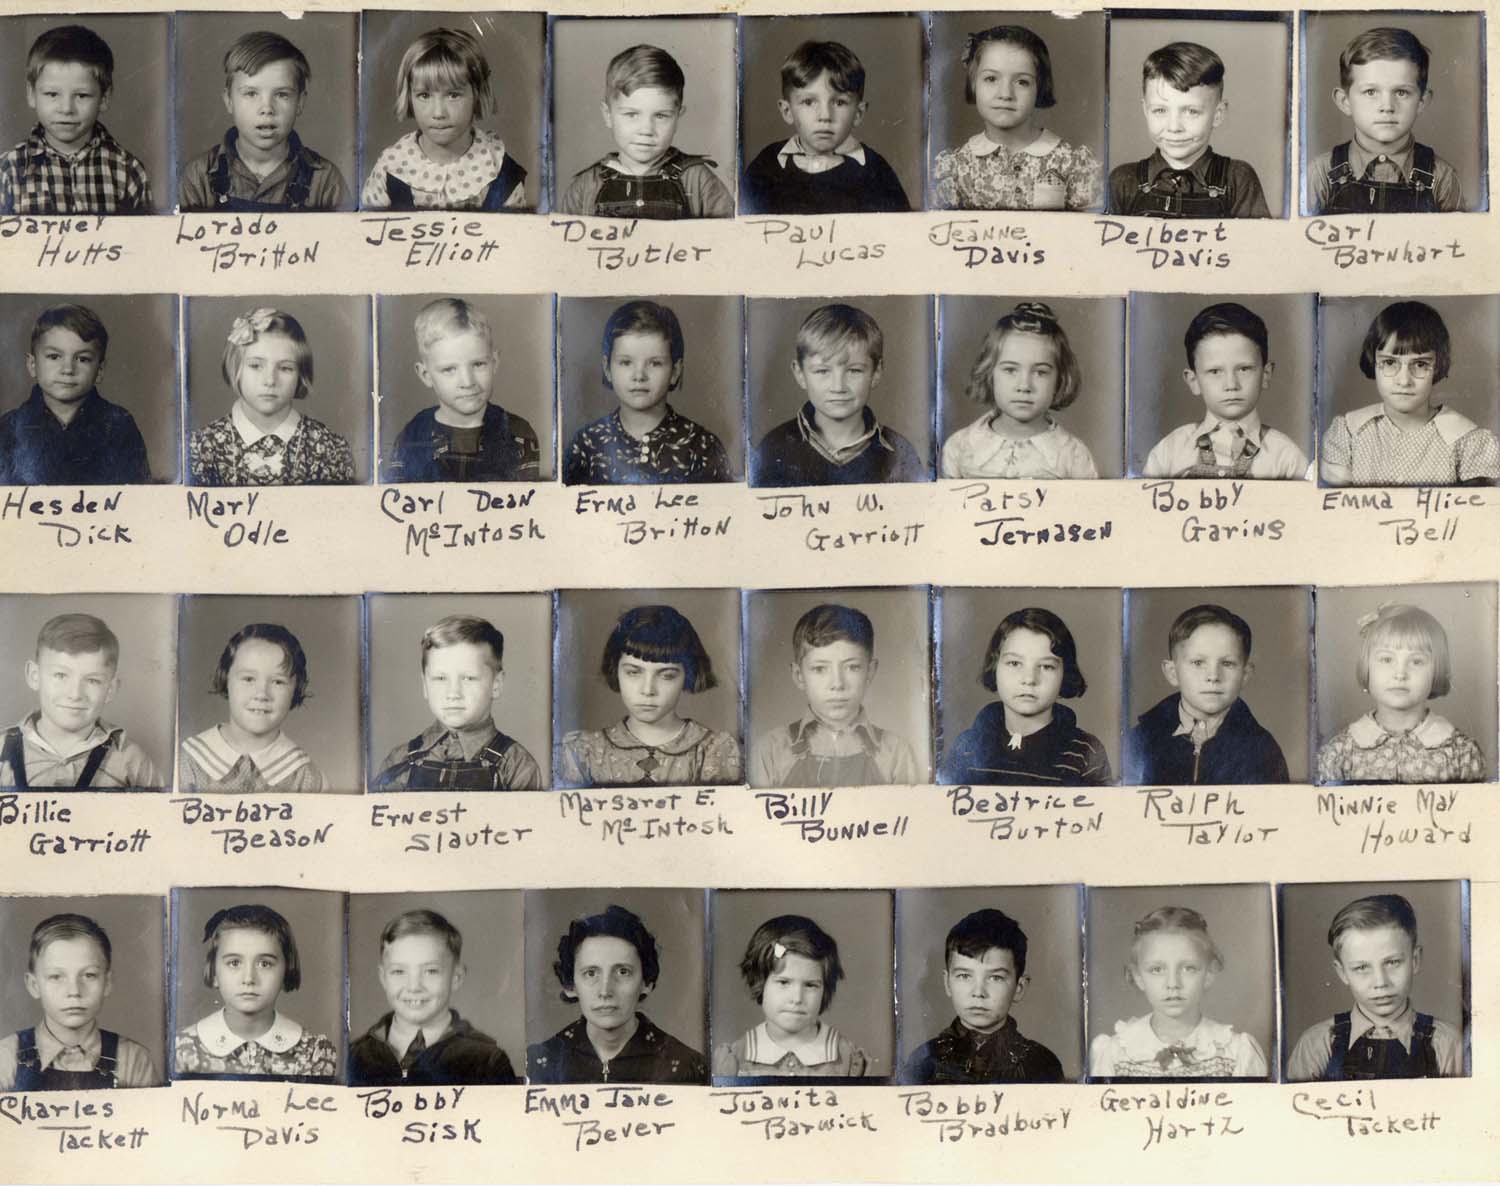 Barney Hutts
Lorado Britton
Jessie Elliott
Dean Butler
Paul Lucas
Jeanne Davis
Delbert Davis
Carl Barnhart
Hesden Dick
Mary Odle
Carl Dean McIntosh
Erma Lee Britton
John W. Garriott
Patsy Jernagen
Bobby Garing
Emma Alice Bell
Billie Garriott
Barbara Beason
Ernest Slauter
Margaret E. McIntosh
Billy Bunnell
Beatrice Burton
Ralph Taylor
Minnie May Howard
Charles Tackett
Norma Lee Davis
Bobby Sisk
Emma Jane Bever
Juanita Barwick
Bobby Bradbury
Geraldine Hartz
Cecil Tackett